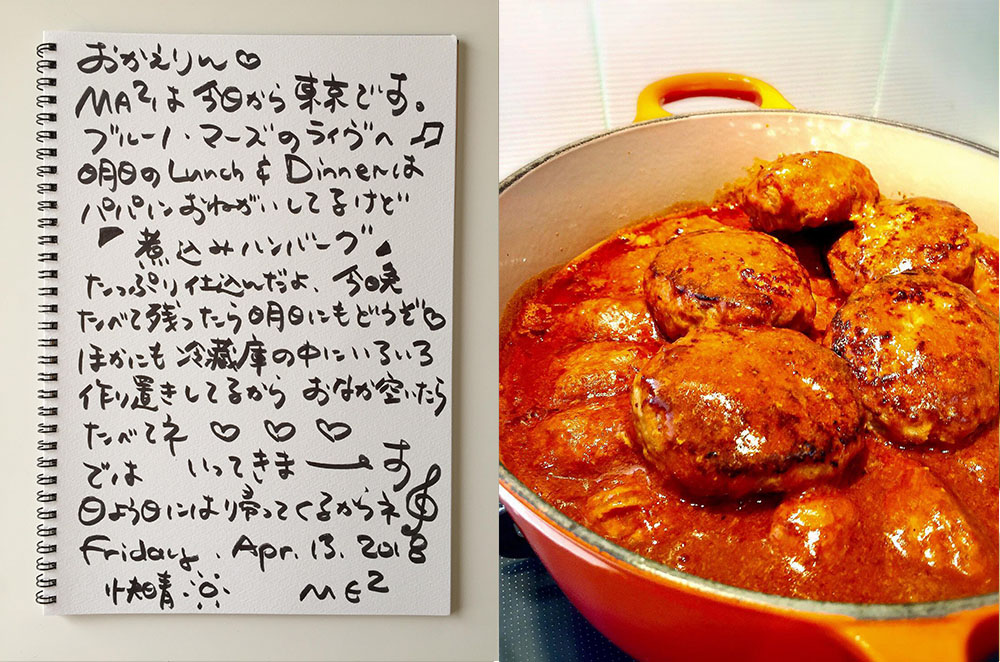 おかえりん♡
MA²は今日から東京です。
ブルーノ・マーズのライヴへ♫
明日のLunch & Dinnerは
パパにおねがいしてるけど
「煮込みハンバーグ」
たっぷり仕込んだよ、今晩
たべて残ったら明日にもどうぞ♡
ほかにも冷蔵庫の中にいろいろ
作り置きしてるから おなか空いたら
たべてネ ♡ ♡ ♡
では いってきまーす
日よう日には帰ってくるからネ
Friday, Apr. 13. 2018
快晴 ME²